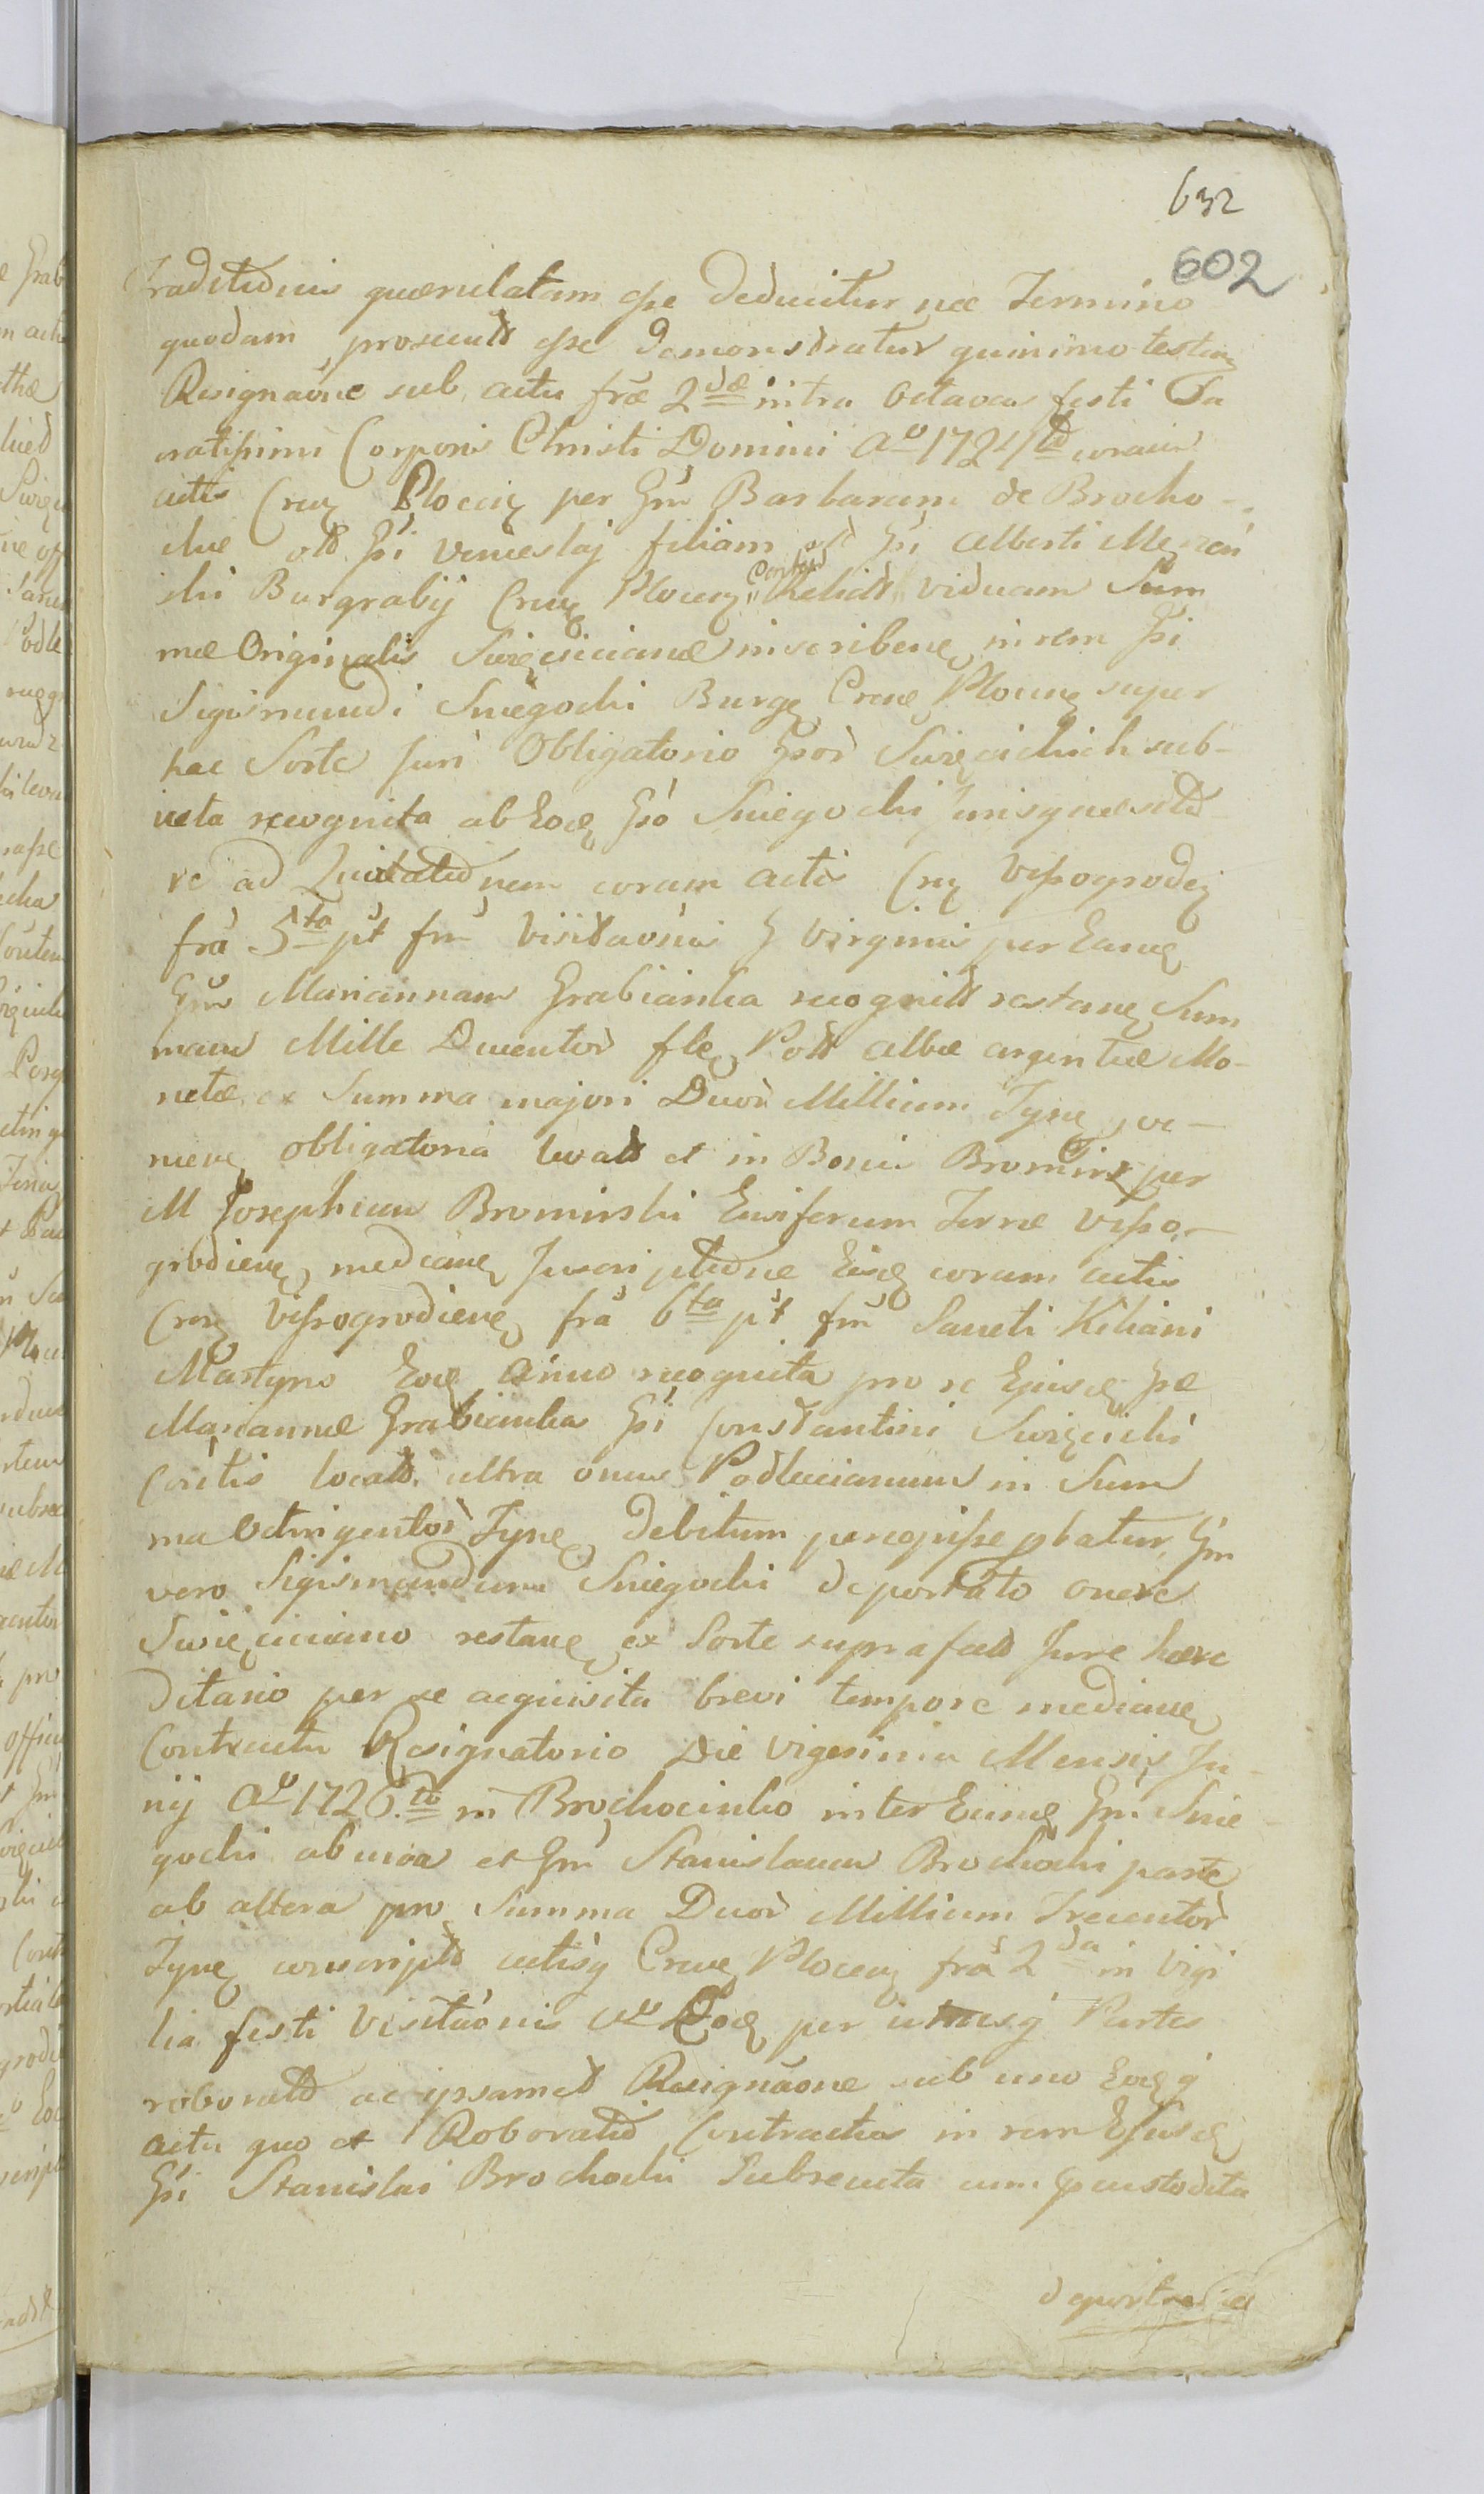 632
602
Traditionis quaerulatam esse deducitur nec Termino
quodam prosecutũ esse demonstratur quinimo testan
Resignaõne sub actu frae 2dae intra Octavas festi Sa
cratissimi Corporis Christi Domini Ao 172 coram
actis Cren Plocen per Gm Barbaram de Brocho-
ckie olĩ Gsi Venceslaj filiam olĩ Gsi Alberti
ski Burgrabij Cren Plocen Contor Relictã viduam Sum
mae Originalis Swięcicianae inscribene in rem Gsi
Sigismundi Sniegocki Burge Crene Plocene super
hac Sorte Juri Obligatorio Gsor Swięcickich sub-
iecta recognita ab Eodę Gso Sniegocki Jurisquaesit
re ad Quietationem coram actis Cren Vissogrodeń
fra 5ta pt fm Visitaõnis B Virginis per Eandę
Gm Mariannam Grabianka recognitt restanę Sum
mam Mille Ducentor flę Poll albae argenteae Mo-
netae ex Summa majori Duor Millium Tyne, ve-
nienę obligatoria locatt et in Bonis Bromierz per
M Josephum Bromirski Ensiferum Terrae Visso-
grodienę medianę Inscriptione Eisdę coram actis
Cren Vissogrodienę fra 6ta pt fm Sancti Kiliani
Martyris Eodę Anno recognita pro re Ejusdę Gae
Mariannae Grabianka Gsi Constantini Swięcicki
Cortis locatt ultra onus Podleicianum in Sum
ma Octingentor Tyne, debitum percepisse pbatur, Gm
vero Sigismundum Sniegocki deportato onere
Swięciciano restanę ex Sorte suprafatt Jure haere
ditario per se acquisita brevi tempore medianę
Contractu Resignatorio Die vigesima Mensis Ju-
nij Ao 1726to in Brochocinko inter Eundę Gm Snie-
gocki ab una et Gm Stanislaum Brochocki parte
ab altera pro Summa Duor Millium Trecentor
Tyne conscriptt actisq Crenę Plocen fra 2da in Vigi
lia festi Visitaõnis Ao Eodę per utrasq Partes
roboratt ac ipsamet Resignaõne sub uno Eodęq
actu quo et Roboratio Contractus in rem Ejusdę
Gsi Stanislai Brochocki Subsecuta cum custodita